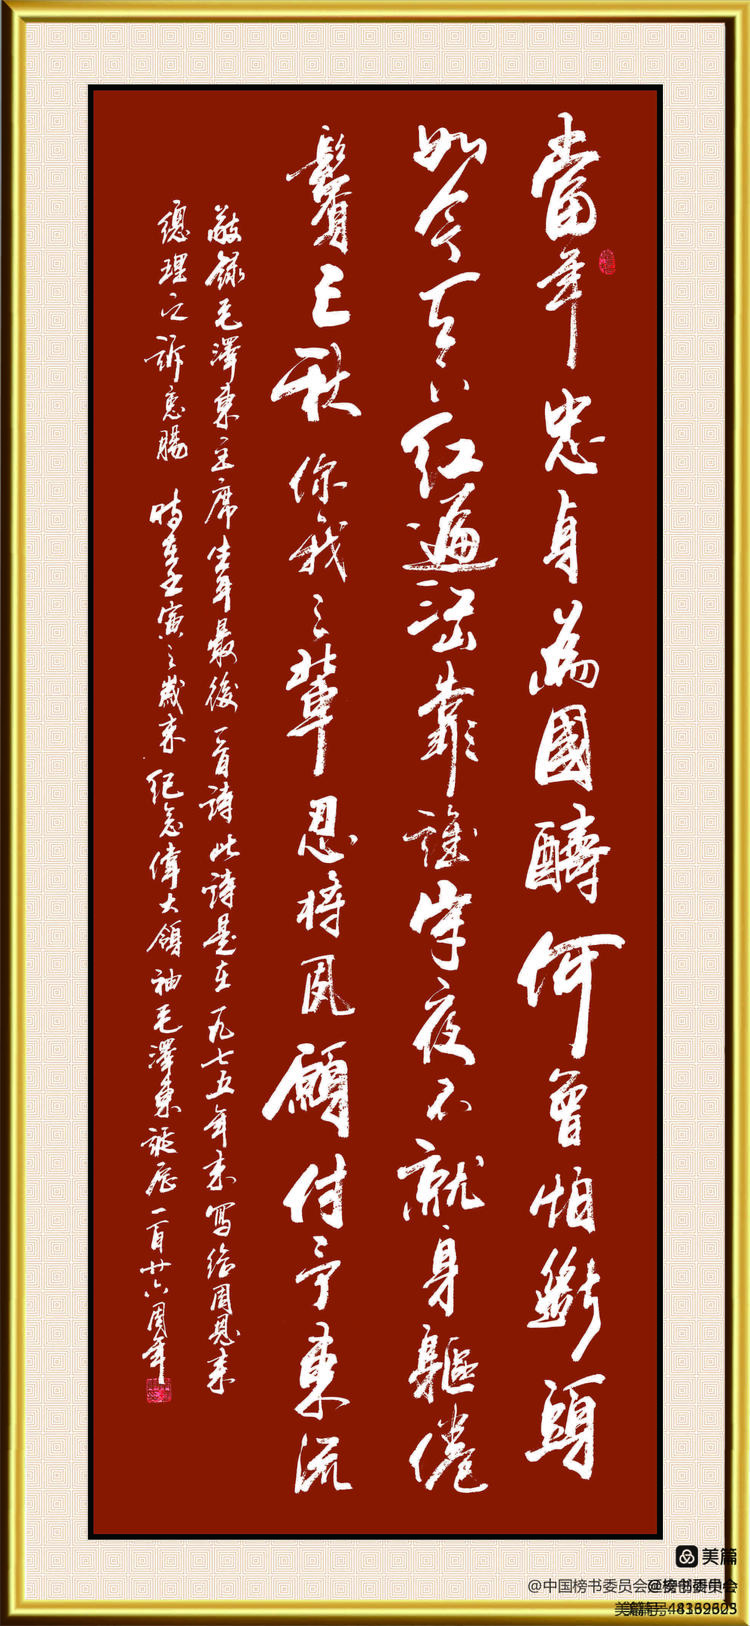 當年忠貞為國醻何曾怕斷頭
如今天下红遍江山靠誰守夜不就身軀倦
鬢已秋你我之輩忍將夙願付予東流
敬録毛澤東主席生年最後一首詩此詩是在一九七五年末寫给周恩来
總理之訴衷腸 時在壬寅之歲末 纪念偉大領袖毛澤東誕辰一百廿六周年
美篇
@中国榜书委员会
美篇号